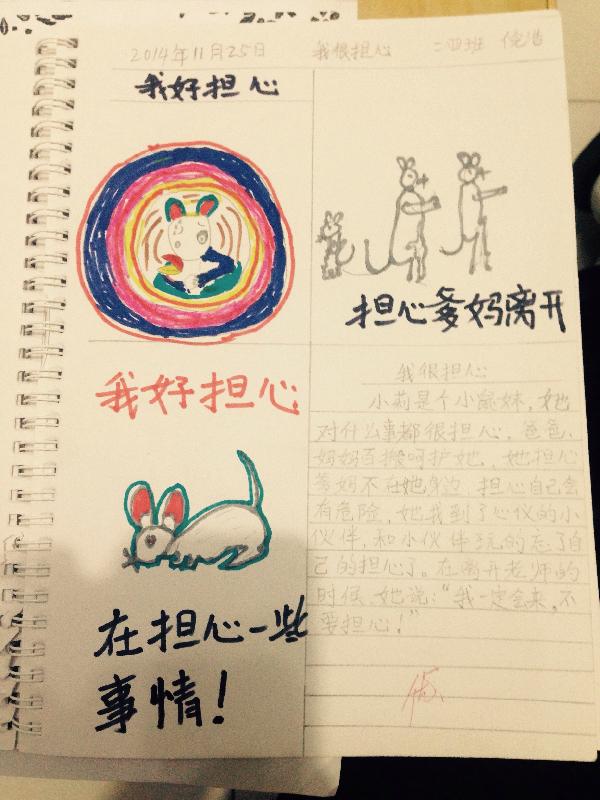 2014年11月25日 我很担心 二四班 倪浩
我好担心
担心爹妈离开
我好担心
在担心一些
事情!
我很担心
小莉是个小鼠妹,她
对什么事都很担心,爸爸、
妈妈百搬呵护她,她担心
爹妈不在她身边,担心自己会
有危险,她找到了心仪的小
伙伴,和小伙伴玩的忘了自
己的担心了。在离开老师的
时候,她说:“我一定会来,不
要担心!”
优